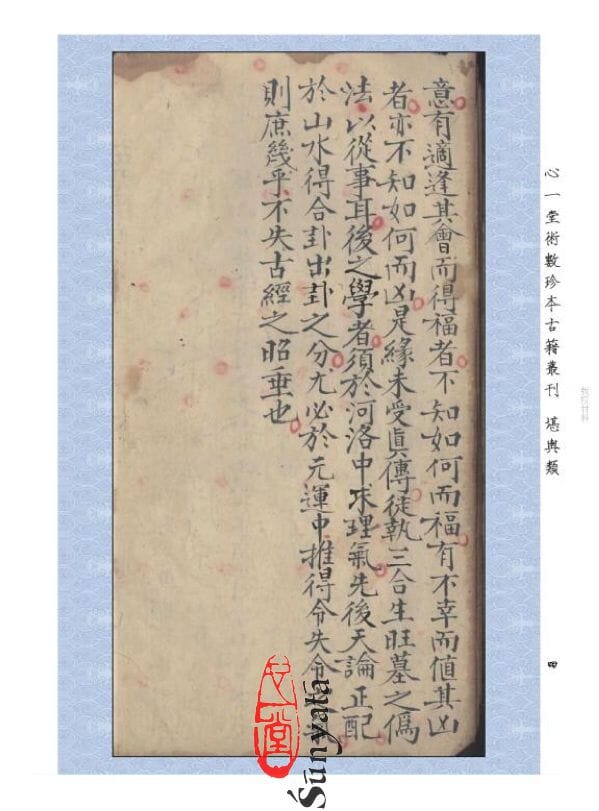 心一堂術數珍本古籍叢刊 堪輿類
四
意有適逢其會而得福者不知如何而福有不幸而值其凶
者亦不知如何而凶是緣未受眞傳徒執三合生旺墓之僞
法以從事耳後之學者須於河洛中求理氣先後天論正配
於山水得合卦出卦之分尤必於元運中推得令失令
則庶幾乎不失古經之昭垂也
心一堂
Śūnyatā